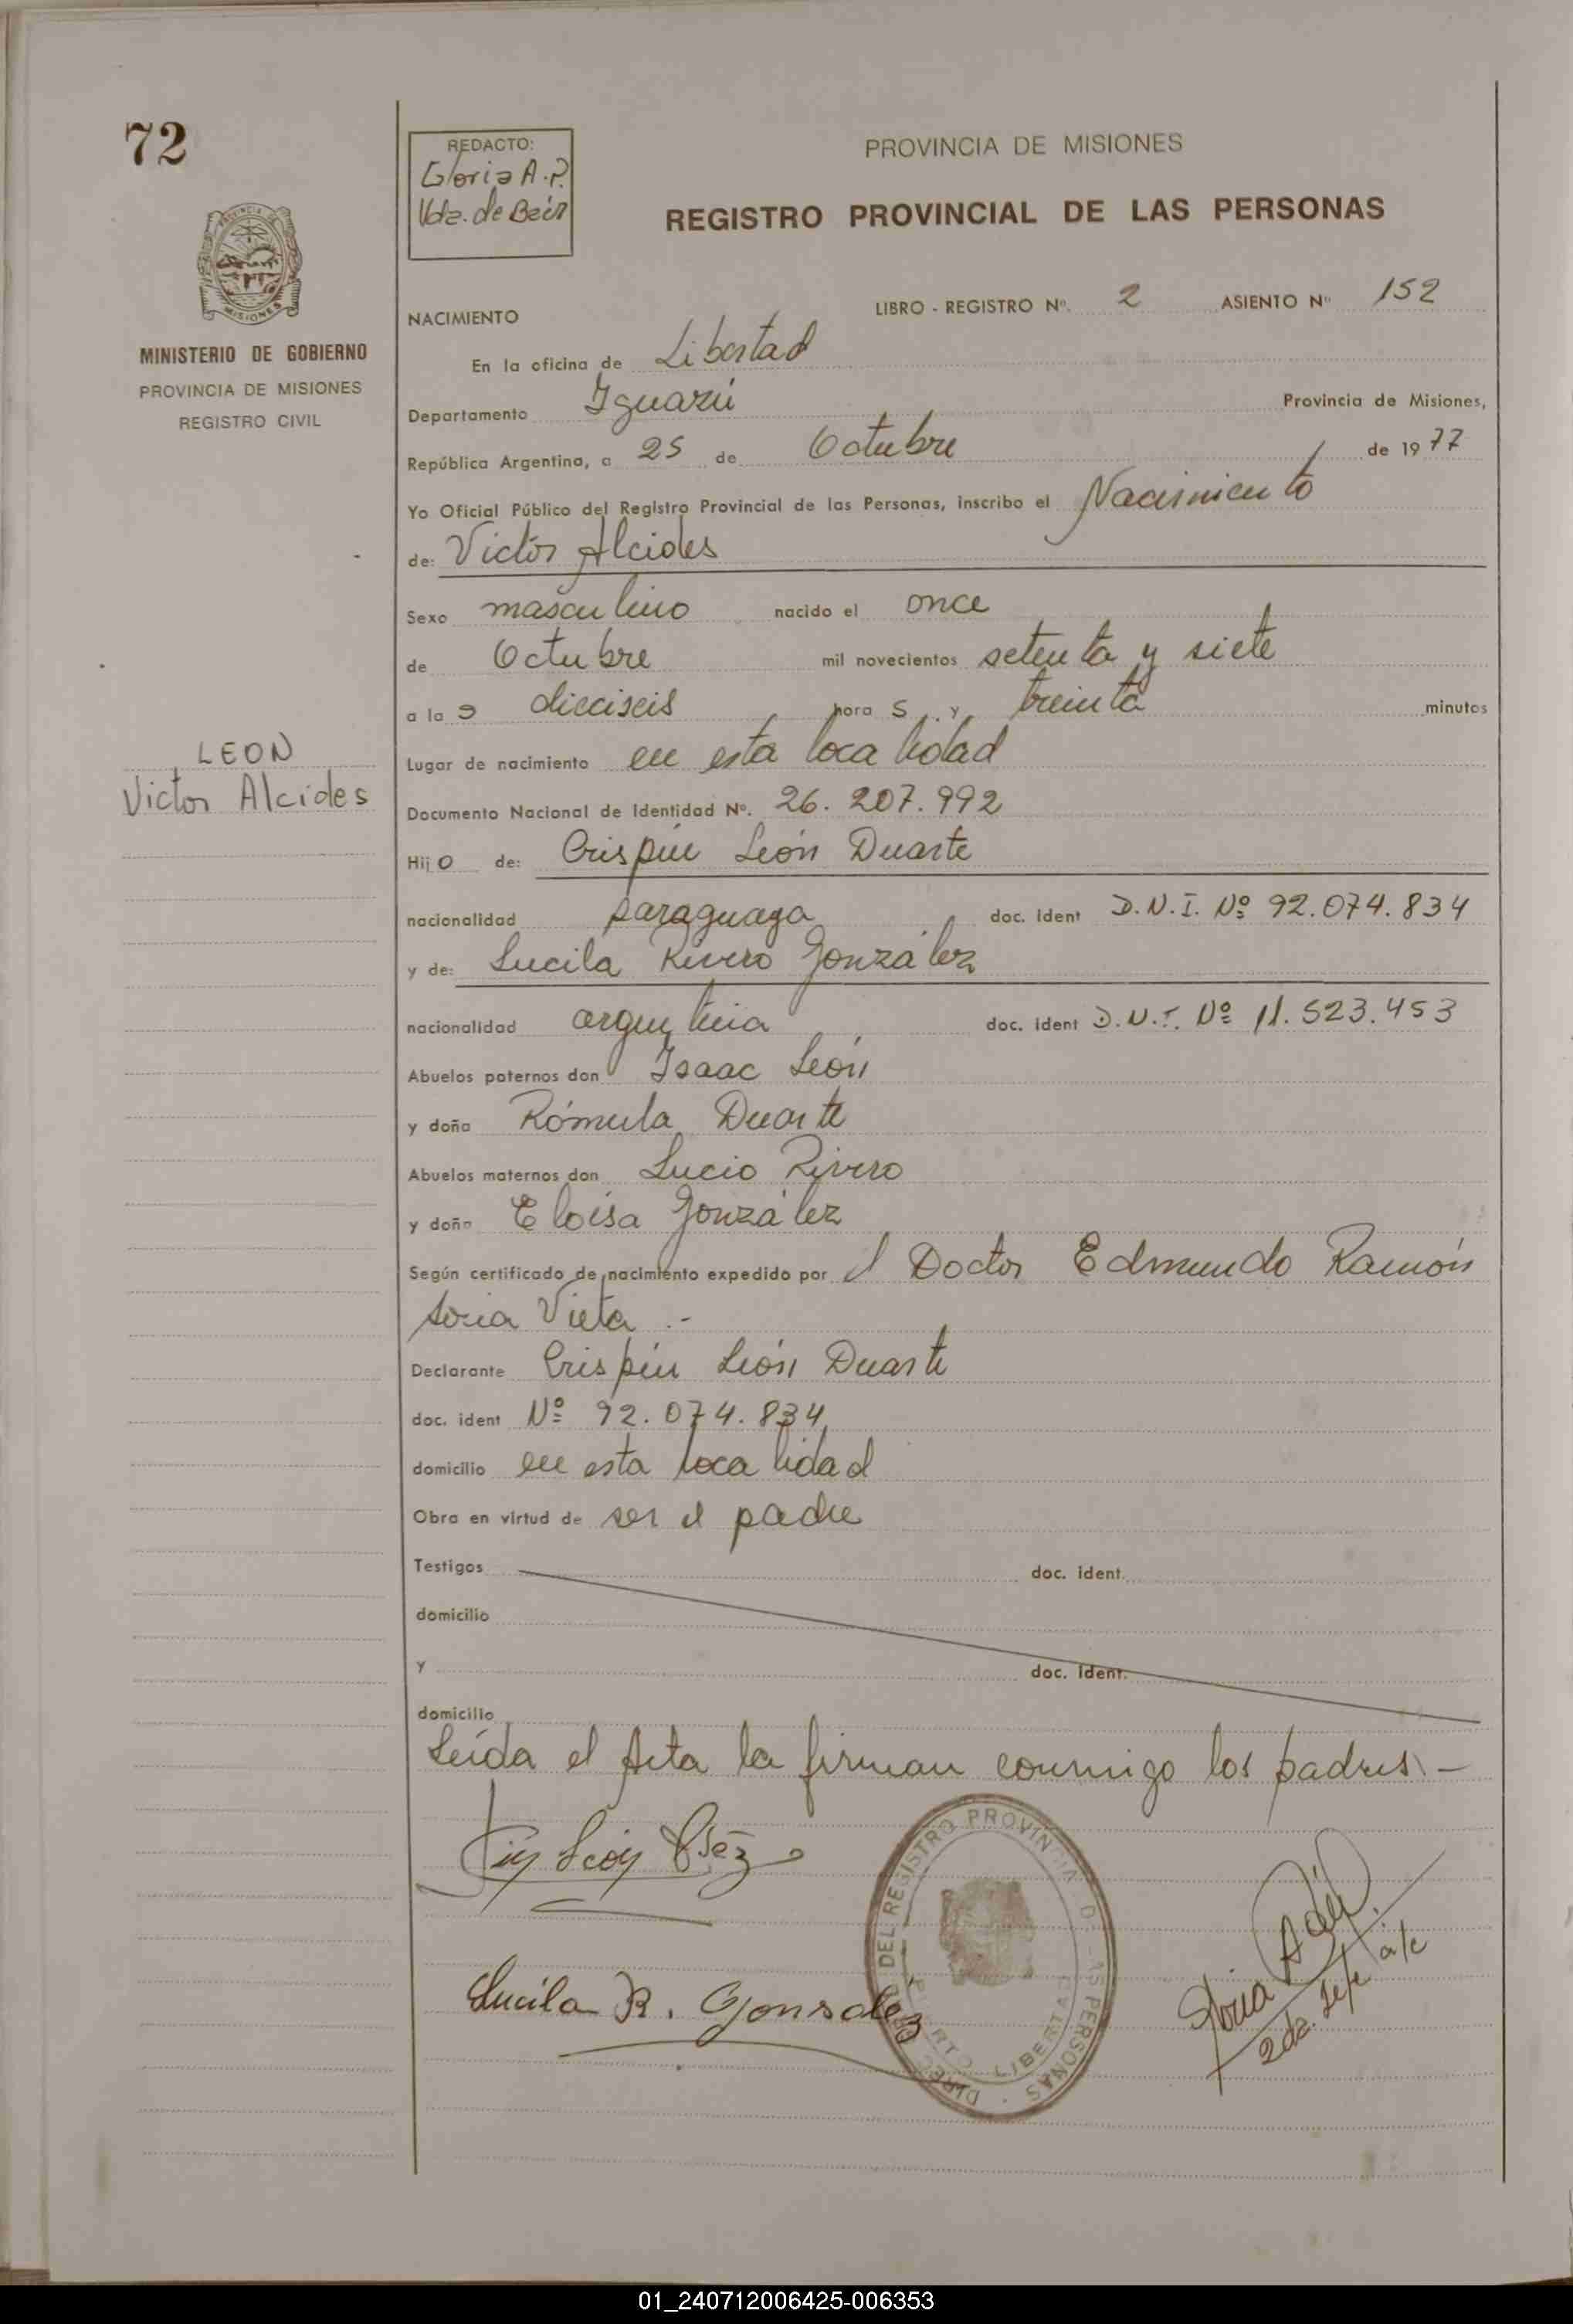 72
REDACTO:
Gloria A. P.
Vda. de
PROVINCIA DE MISIONES
REGISTRO PROVINCIAL DE LAS PERSONAS
PROVINCIA DE
MISIONES
MINISTERIO DE GOBIERNO
PROVINCIA DE MISIONES
REGISTRO CIVIL
LEON
Victor Alcides
LIBRO - REGISTRO Nº. 2 ASIENTO Nº 152
NACIMIENTO
En la oficina de Libertad
Departamento Iguazú Provincia de Misiones,
República Argentina, a 25 de Octubre de 1977
Yo Oficial Público del Registro Provincial de las Personas, inscribo el Nacimiento
de: Victor Alcides
Sexo masculino nacido el once
de Octubre mil novecientos setenta y siete
a la s dieciseis hora s y treinta minutos
Lugar de nacimiento en esta localidad
Documento Nacional de Identidad Nº. 26.207.992
Hijo de: Crispín León Duarte
nacionalidad paraguaya doc. Ident D.N.I. Nº 92.074.834
y de: Lucila Rivero González
nacionalidad argentina doc. ident D.N.I. Nº 11.523.453
Abuelos paternos don Isaac León
y doña Rómula Duarte
Abuelos maternos don Lucio Rivero
y doña Eloisa González
Según certificado de nacimiento expedido por el Doctor Edmundo Ramón
Soria Vieta .-
Declarante Crispín León Duarte
doc. ident Nº 92.074.834
domicilio en esta localidad
Obra en virtud de ser el padre
Testigos doc. ident.
domicilio
y doc. ident.
domicilio
Leída el Acta la firman conmigo los padres. -
León
Lucila R. Gonsalez
DEL REGISTRO PROVINCIAL DE LAS PERSONAS
LIBERTAD
a/c
01_240712006425-006353